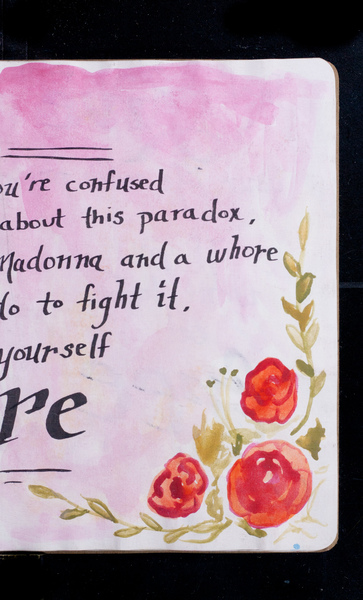 ou're confused
about this paradox,
Madonna and a whore
do to fight it,
yourself
re